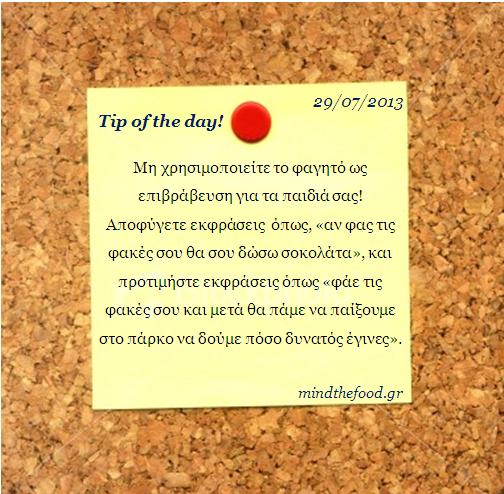 29/07/2013
Tip of the day!
Μη χρησιμοποιείτε το φαγητό ως
επιβράβευση για τα παιδιά σας!
Αποφύγετε εκφράσεις όπως, «αν φας τις
φακές σου θα σου δώσω σοκολάτα», και
προτιμήστε εκφράσεις όπως «φάε τις
φακές σου και μετά θα πάμε να παίξουμε
στο πάρκο να δούμε πόσο δυνατός έγινες».
mindthefood.gr